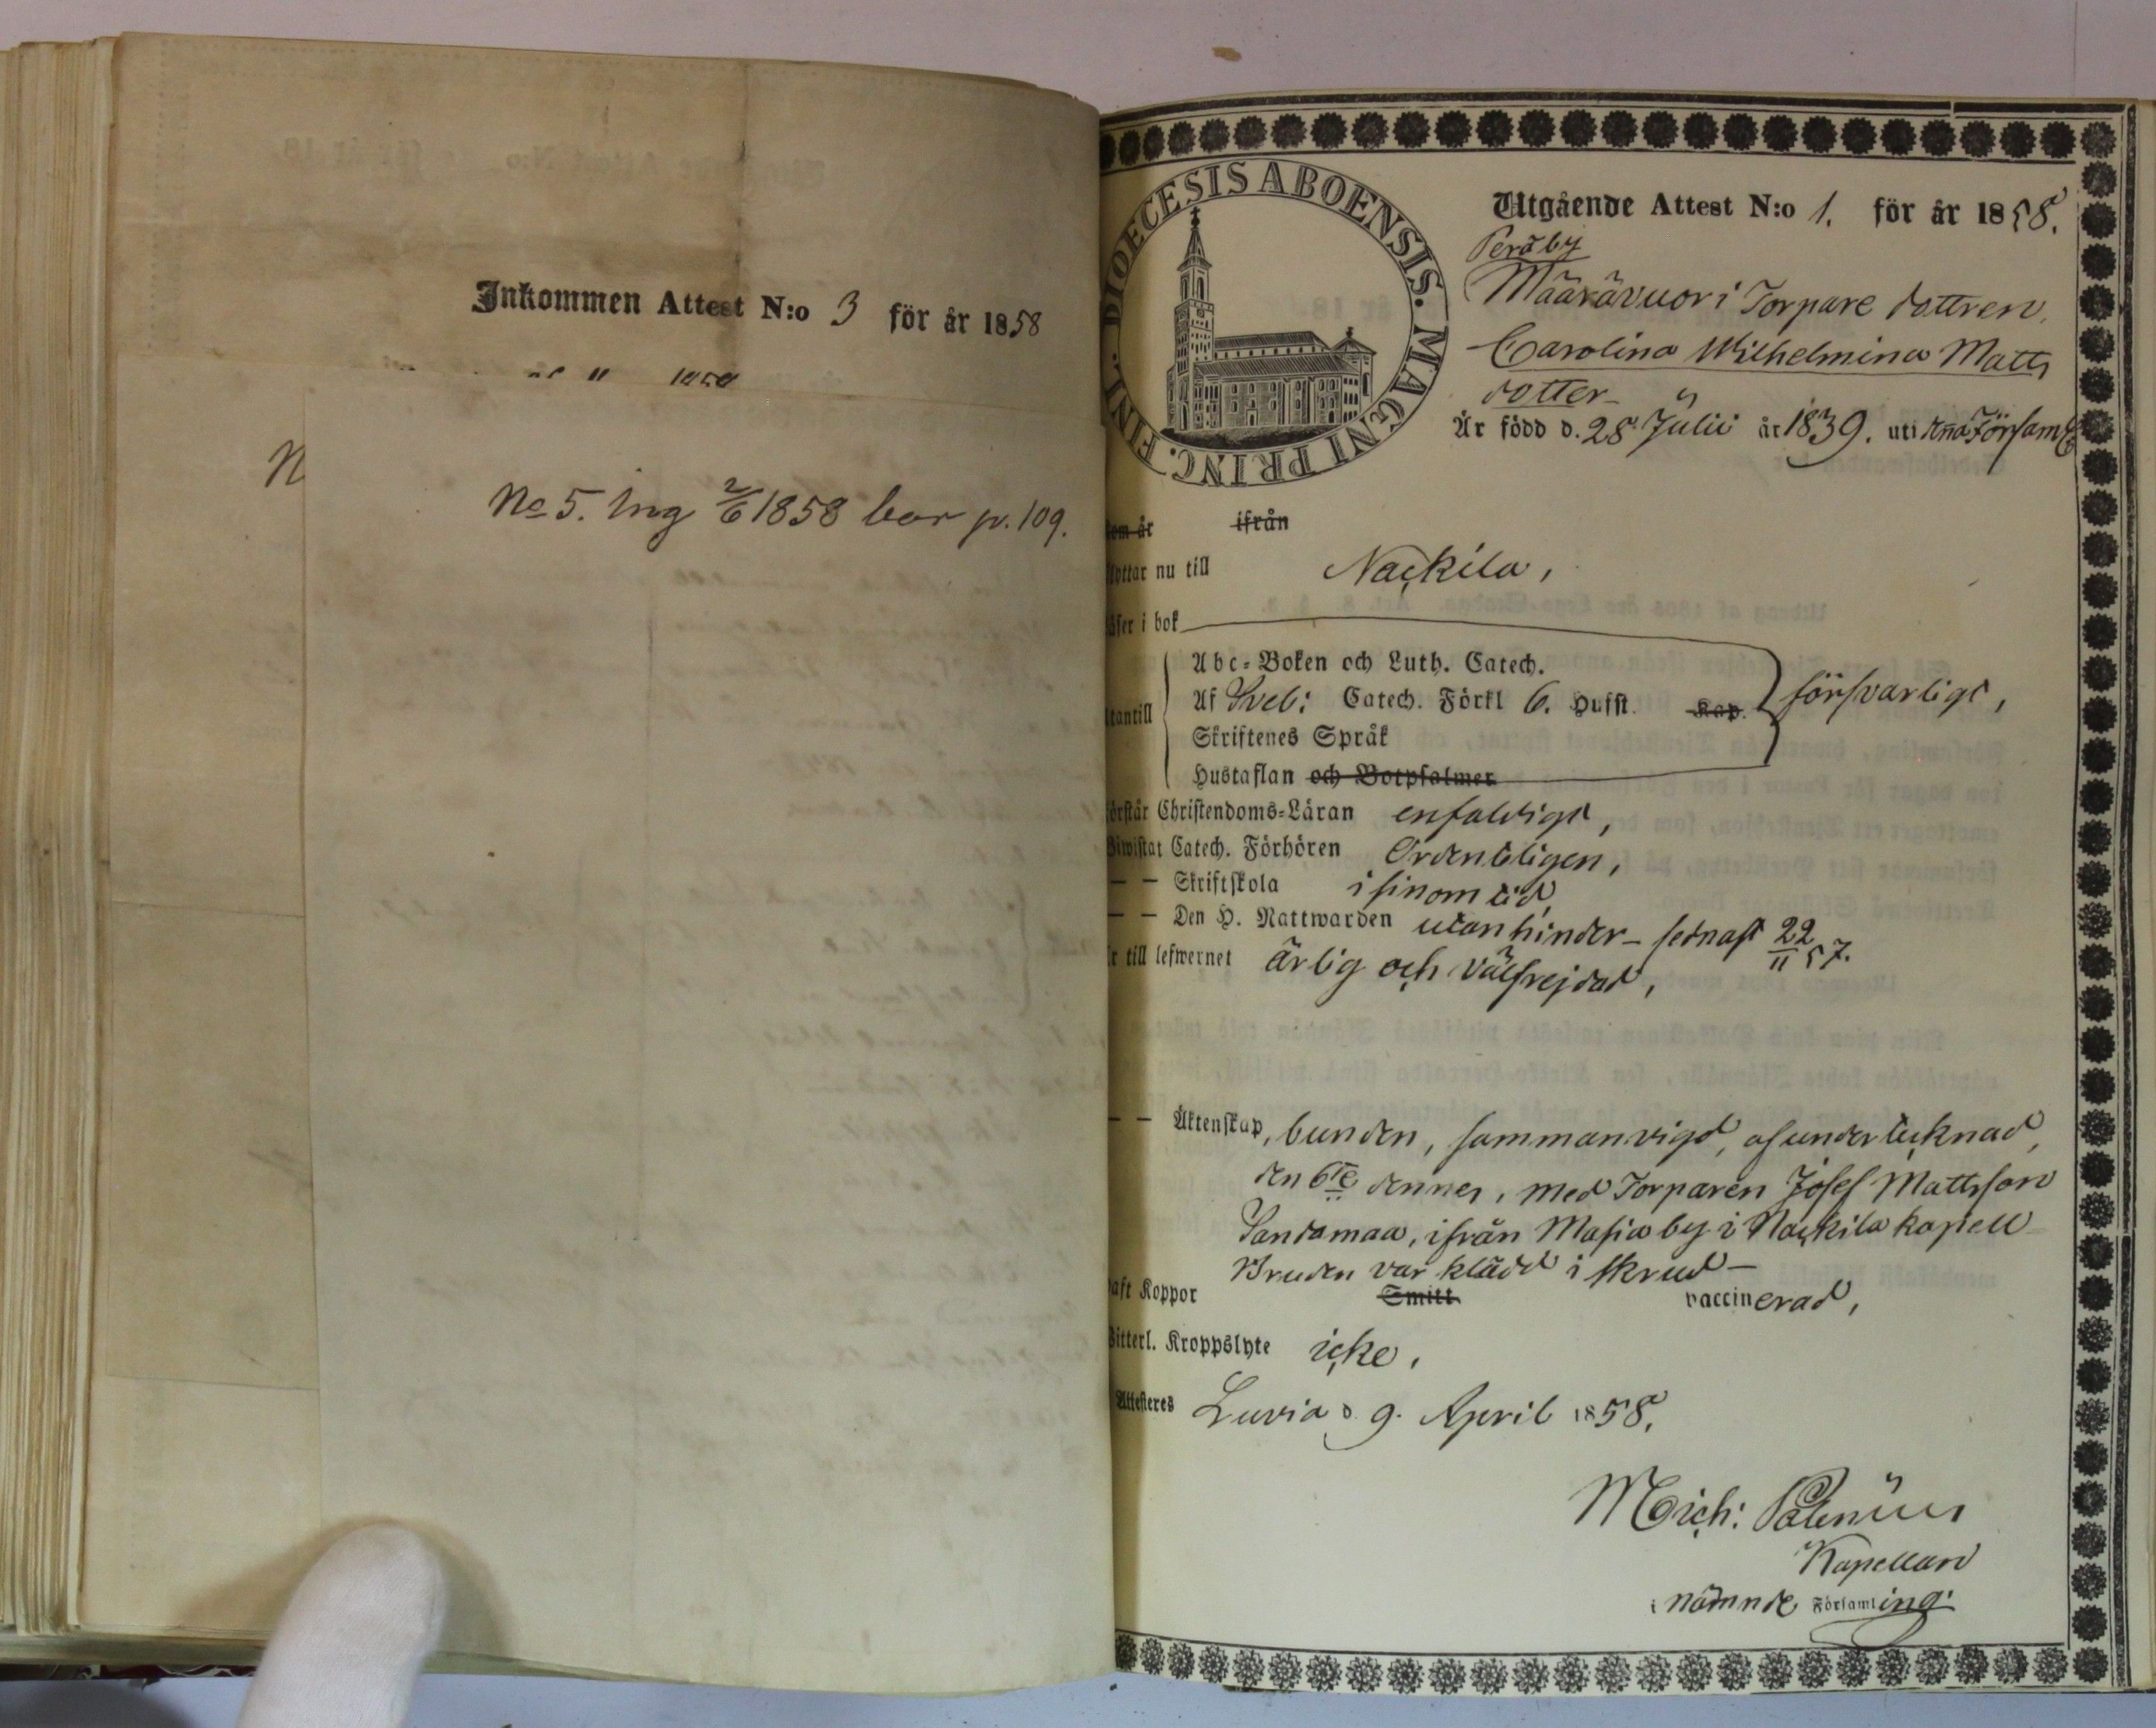 Inkommen Attest N:o 3 för år 1858
N
No 5. Ing 2/6 1858 bor p. 109.
DIOECESIS ABOENSIS. MAGNI PRINC. FINL.
Utgående Attest N:o 1. för år 1858.
Peräby
Määrävuori Torpare dottren,
Carolina Wilhelmina Matts
dotter
Är född d. 28 Julii år 1839. uti dña Församl
som är ifrån
flyttar nu till Nackila,
läser i bok
Abc-Boken och Luth. Catech.
utantill Af Sveb: Catech. Förkl 6. Hufst. Kap. försvarligt,
Skriftenes Språk
Hustaflan och Botpsalmer
förstår Christendoms-Läran enfaldigt,
Biwistat Catech. Förhören Ordenteligen,
— — Skriftskola i sinom tid,
— — Den H. Nattwarden utan hinder – sednast 22/11 57.
är till lefwernet ärlig och välfrejdad,
— — Äktenskap, bunden, sammanvigd, af undertecknad,
den 6te dennes, med Torparen Josef Mattsson
Sandamaa, ifrån Masia by i Nackila kapell
Bruden var klädd i skrud –
haft Koppor Smitt vaccinerad,
Witterl. Kroppslyte icke,
Attesteres Luvia d. 9. April 1858.
Mich: Polenius
Kapellan
i nämnde Församling.